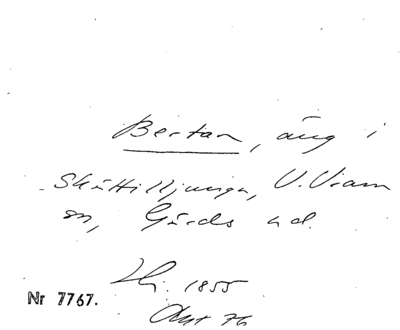 Bertan, äng i
Skättilljunga, V. Vram
sn, Gärds hd.
1855
Nr 7767.
Akt 76